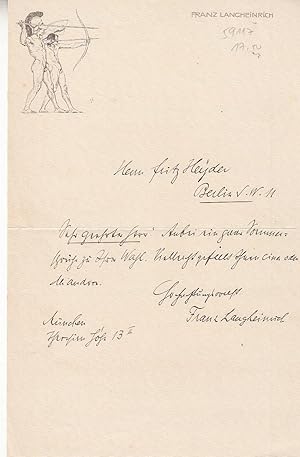 FRANZ LANGHEINRICH
59117
17.50
Herrn Fritz Heyder
Berlin S.W. 11
Sehr geehrter Herr! Anbei ein paar Sommer-
sprüche zu Ihrer Wahl. Vielleicht gefällt Ihnen eins oder
das andere.
Hochachtungsvoll
Franz Langheinrich
München
13 II